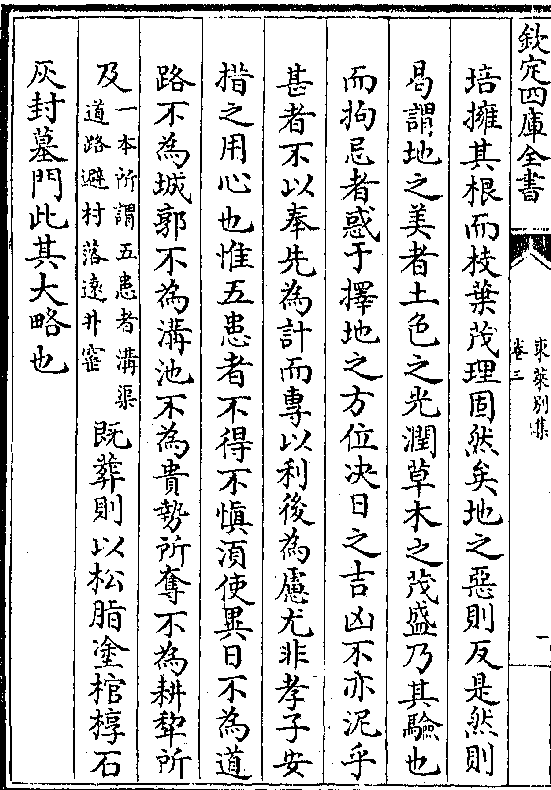 欽定四庫全書
東萊別集
卷三
一
培擁其根而枝葉茂理固然矣地之惡則反是然則
曷謂地之美者土色之光潤草木之茂盛乃其驗也
而拘忌者惑于擇地之方位決日之吉凶不亦泥乎
甚者不以奉先為計而專以利後為慮尤非孝子安
措之用心也惟五患者不得不慎湏使異日不為道
路不為城郭不為溝池不為貴勢所奪不為耕犂所
及一本所謂五患者溝渠道路避村落遠井窑既葬則以松脂塗棺椁石
灰封墓門此其大略也